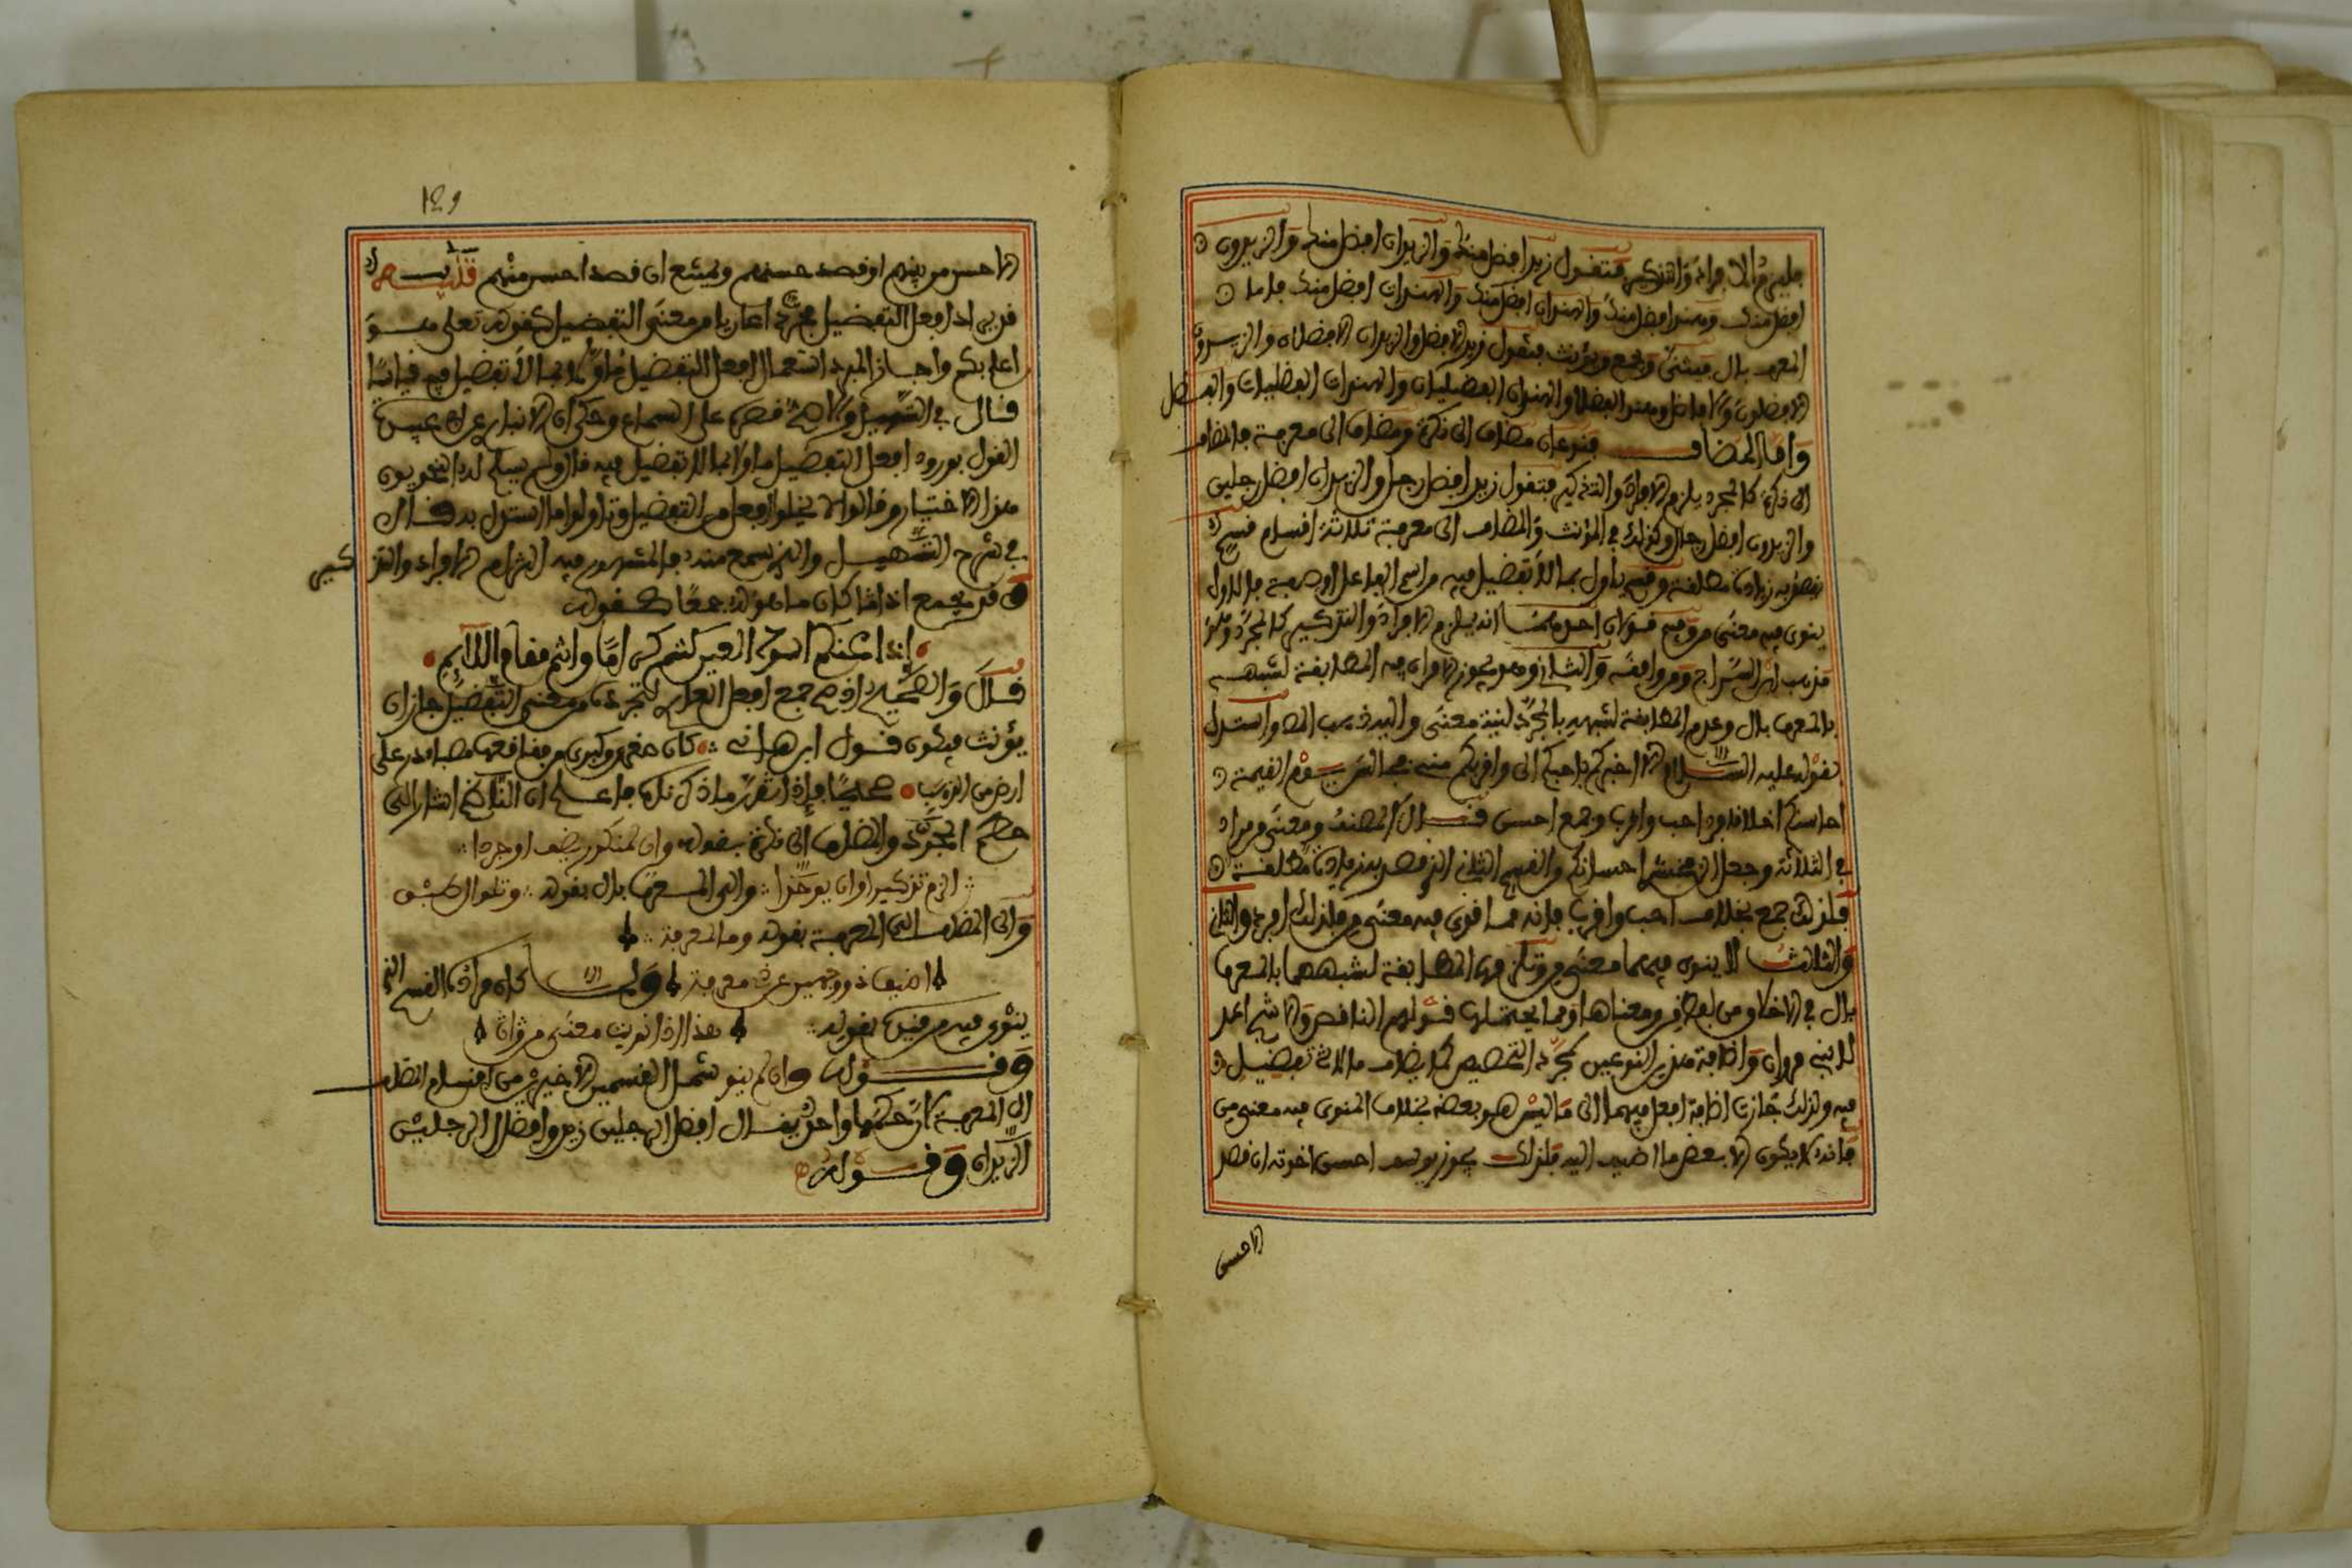 فيلزم الافراد والتذكير فتقول زيد افضل منك والزيدان افضل منك والزيدون
افضل منك وهند افضل منك والهندان افضل منك والهندات افضل منك فاما
المعرف بال فيثنى ويجمع ويؤنث فتقول زيد الافضل والزيدان الافضلان والزيدون
الافضلون والافاضل وهند الفضلى والهندان الفضليان والهندات الفضليات والفضل
واما المضاف فنوعان مضاف الى نكرة ومضاف الى معرفة فالمضاف
الى نكرة كالمجرد يلزم الافراد والتذكير فتقول زيد افضل رجل والزيدان افضل رجلين
والزيدون افضل رجال وكذلك في المؤنث والمضاف الى معرفة ثلاثة اقسام قسم
يقصد به زيادة مطلقة وقسم ياول بما لا تفضيل فيه من اسم الفاعل او صفة فالاول
ينوى فيه معنى من وفيه قولان احدهما انه يلزم الافراد والتذكير كالمجرد وهو
مذهب ابن السراج ومن وافقه والثاني وهو يجوز الافراد فيه المطابقة لشبهه
بالمعرف بال وعدم المطابقة لشبهه بالمجرد لنية معنى واليه ذهب المص واستدل
بقوله عليه السلام الا اخبركم باحبكم الى واقربكم مني مجالس يوم القيمة
احاسنكم اخلاقا فرد احب واقرب وجمع احسن قال المصنف ومعنى من مراد
في الثلاثة وجعل الزمخشري احسانكم والقسم الثاني الذي قصد به زيادة مطلقة
فلذلك جمع بخلاف احب واقرب فانه مما اقوى فيه معنى من فلذلك افرد والثاني
والثالث لا ينوى فيهما معنى من وتلزم فيها المطابقة لشبههما بالمعرف
بال في الاخلاء من لفظ من ومعناها ومما يحتملها قولهم الناقص والاشج اعد
لا بني مروان واضافة هذين النوعين لمجرد التخصيص كما يضاف ما لا تفضيل
فيه ولذلك جازت اضافة افعل فيهما الى ما ليس هو بعضه بخلاف المنوى فيه معنى من
فانه لا يكون الا بعض ما اضيف اليه فلذلك يجوز يوسف احسن اخوته ان قصد
الاحسن
١٤٩
الاحسن من بينهم او قصد حسنهم ويمتنع ان قصد احسن منهم تنبيه
قد يرد افعل التفضيل مجردا عاريا من معنى التفضيل كقوله تعلى هو
اعلم بكم واجاز المبرد استعمال افعل التفضيل ماولا بما لا تفضيل فيه قياسا
قال في التسهيل والاصح قصره على السماع وحكى ابن الانباري عن ابي عبيدة
القول بورود افعل التفضيل ماولا بما لا تفضيل فيه قال ولم يسلم له النحويون
هذا الاختيار وقالوا لا يخلو افعل من التفضيل وتاولوا ما استدل به قال
في شرح التسهيل والذي يسمع منه فالمشهور فيه التزام الافراد والتذكير
وقد يجمع اذا كان ما هو له جمعا كقوله
اذا غاب عنكم اسود العين كنتم كراما وانتم ما اقام الالايم
قال واذا صح جمع افعل العاري لتجرده من معنى التفضيل جاز ان
يؤنث فيكون قول ابن هانيء كان صغرى وكبرى من فقاقعها حصباء در على
ارض من الذهب صحيحا فاذا تقرر ما ذكرناه فاعلم ان الناظم اشار الى
حكم المجرد والمضاف الى نكرة بقوله وان لمنكور يضف او جردا
الزم تذكيرا وان يوحدا والى المعرف بال بقوله وتلو ال طبق
والى المضاف الى المعرفة بقوله وما لمعرفة
اضيف ذو وجهين عن ذي معرفة ولما كان مراده القسم الذي
ينوى فيه من فيه بقوله هذا اذا نويت معنى من وان
وقوله وان لم تنو شمل القسمين الاخيرين من اقسام المضاف
الى المعرفة لان حكمها واحد يقال افضل الرجلين زيد وافضلا الرجلين
الزيدان وقوله